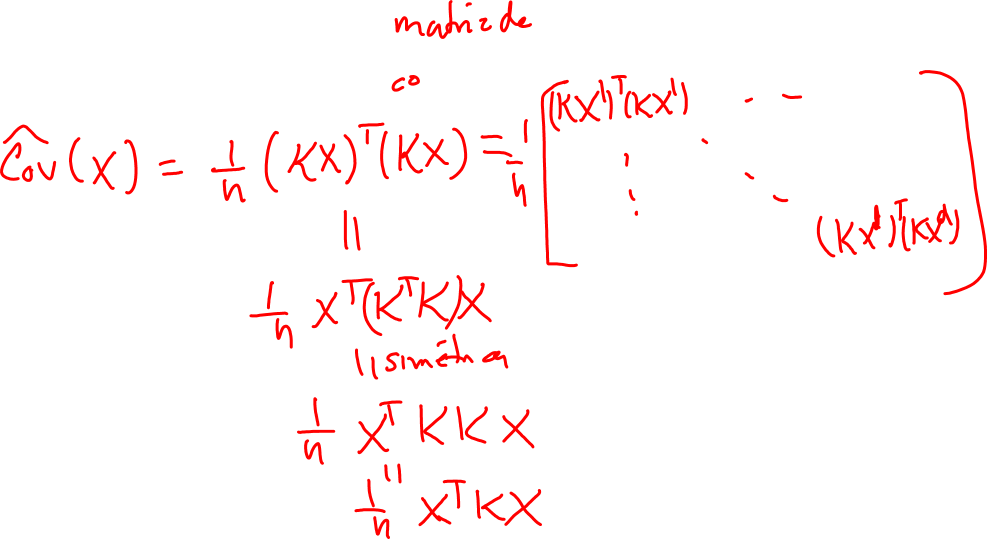 matriz de
co
\widehat{Cov}(X) = \frac{1}{n} (KX)^T(KX) = \frac{1}{n} [ (KX^1)^T(KX^1) ⋯ ⋮ ⋱ (KX^d)^T(KX^d) ]
||
\frac{1}{n} X^T(K^TK)X
|| simétrica
\frac{1}{n} X^T K K X
||
\frac{1}{n} X^T K X